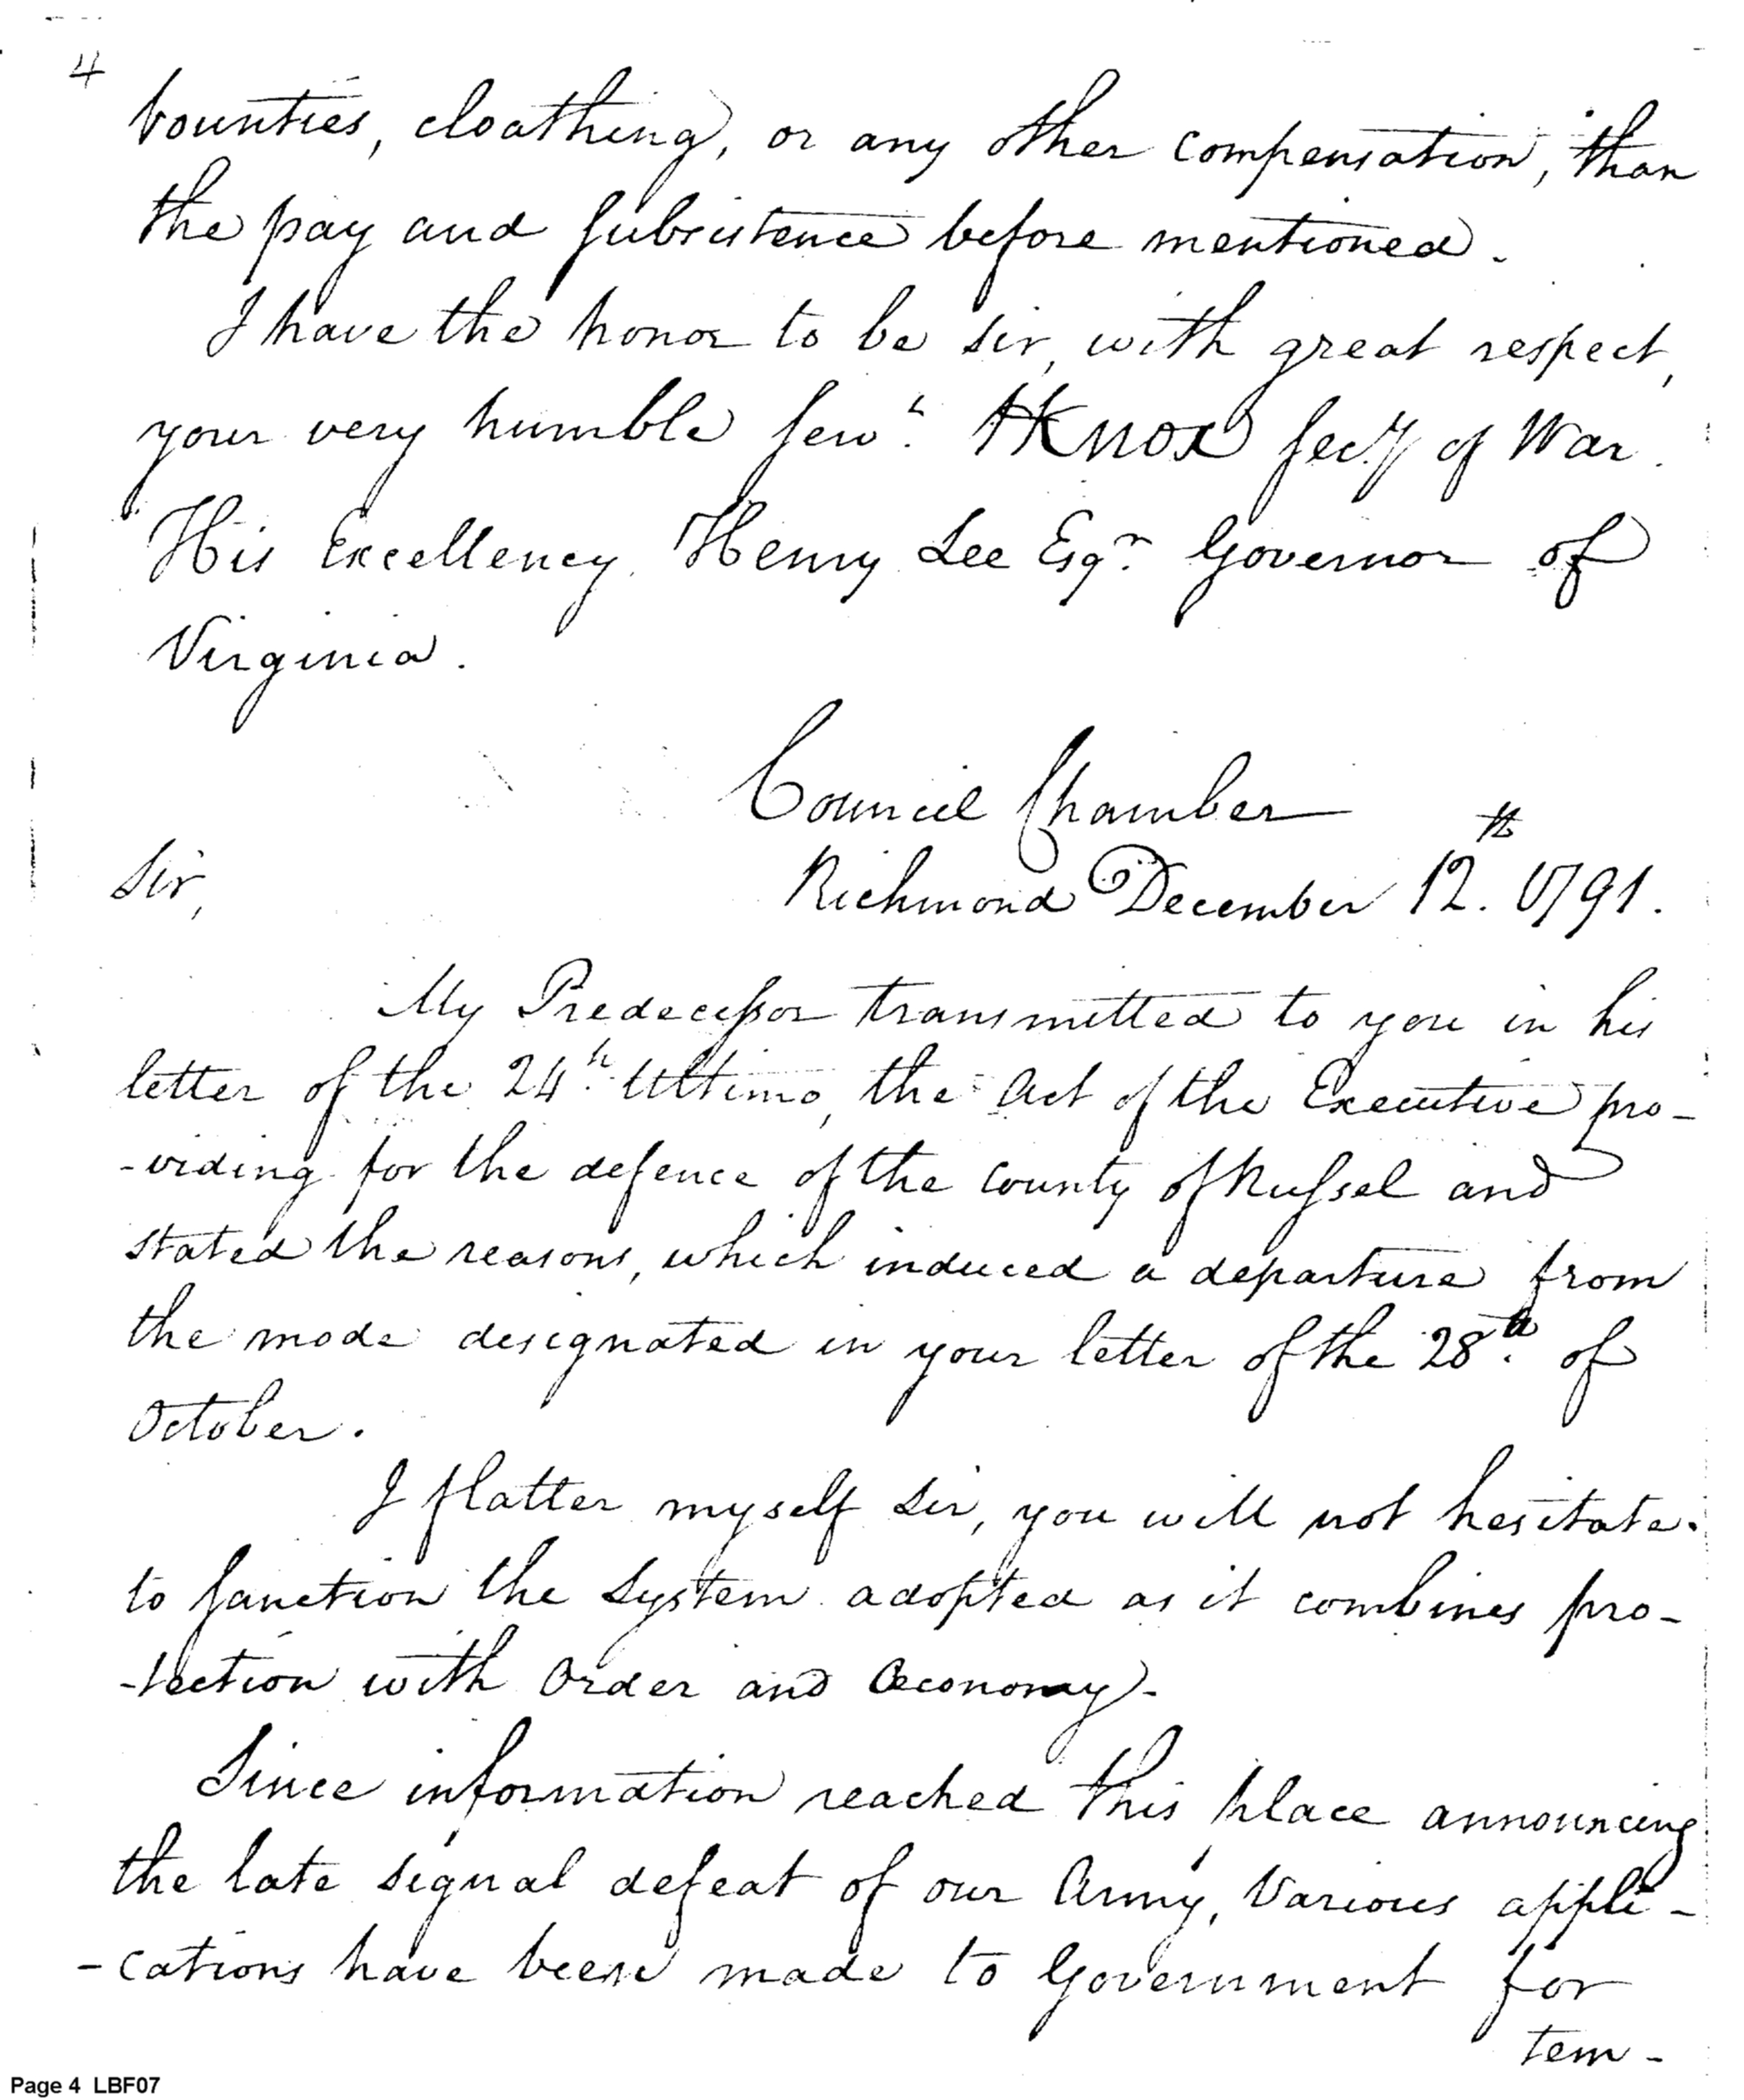 4
bounties, cloathing, or any other compensation, than
the pay and subsistence before mentioned.
I have the honor to be sir, with great respect,
your very humble serv.t HKnox sec.y of War.
His Excellency Henry Lee Esq.r Governor of
Virginia.
Council Chamber
Sir, Richmond December 12.th 1791.
My Predecessor transmitted to you in his
letter of the 24.h Ultimo, the Act of the Executive pro-
-viding for the defence of the County of Russel and
stated the reasons, which induced a departure from
the mode designated in your letter of the 28.th of
October.
I flatter myself Sir, you will not hesitate.
to sanction the System adopted as it combines pro-
-tection with Order and Œconomy-
Since information reached this place announcing
the late signal defeat of our Army, Various appli-
-cations have been made to Government for
tem-
Page 4 LBF07